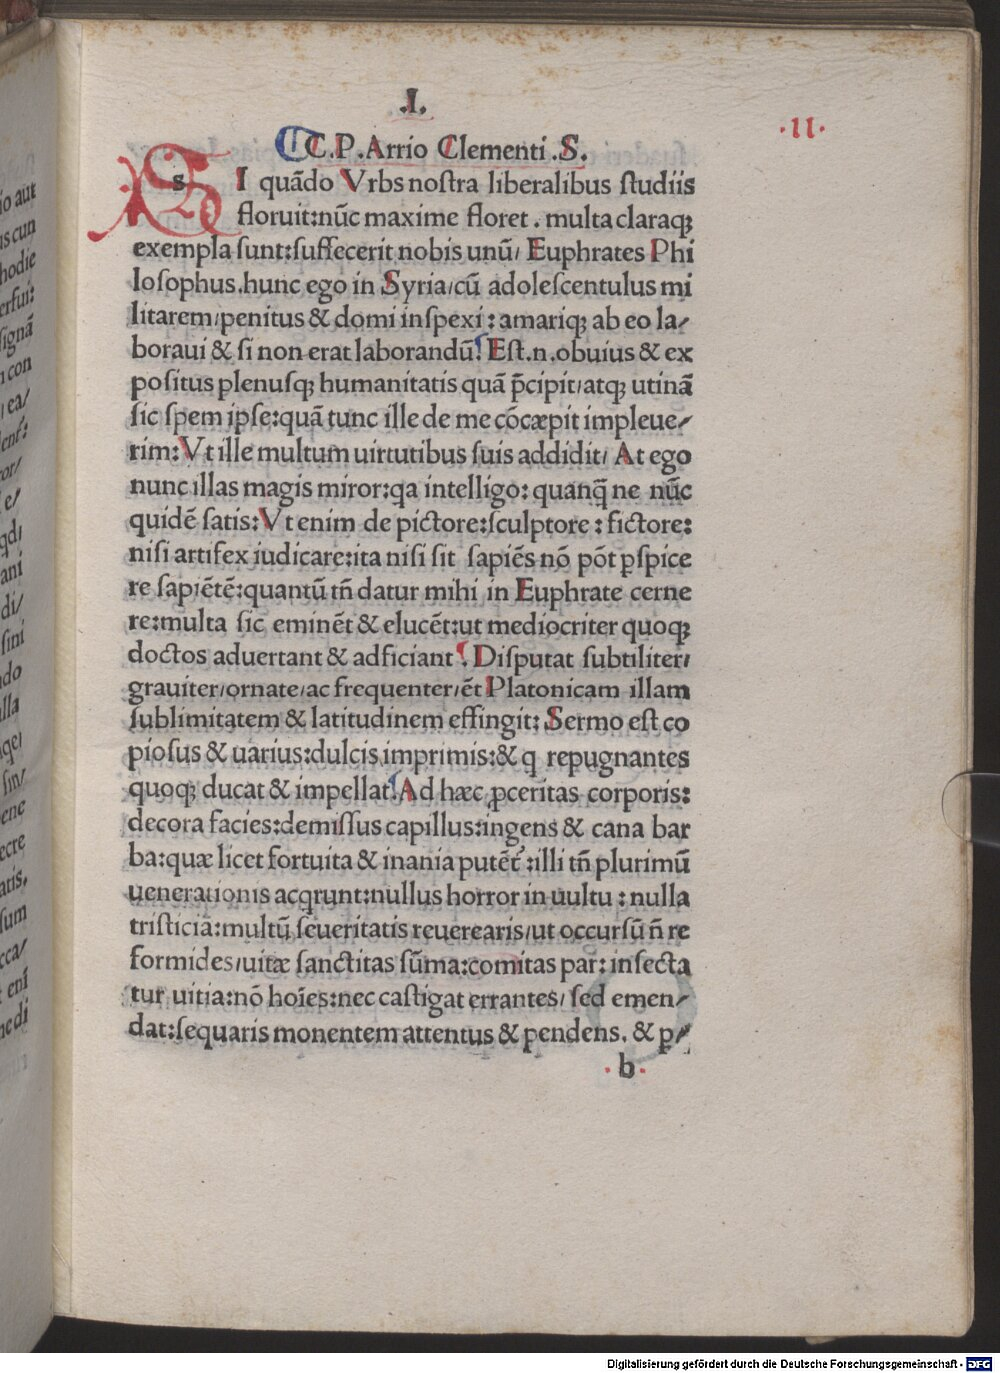 .I.
.11.
C.P.Arrio Clementi .S.
SI quādo Vrbs noſtra liberalibus ſtudiis
floruit:nūc maxime floret . multa claraqꝫ
exempla ſunt:ſuffecerit nobis unū/ Euphrates Phi
loſophus.hunc ego in Syria/cū adoleſcentulus mi
litarem/penitus & domi inſpexi : amariqꝫ ab eo la/
boraui & ſi non erat laborandū. Eſt.n.obuius & ex
poſitus plenuſqꝫ humanitatis quā p̄cipit/atqꝫ utinā
ſic ſpem ipſe:quā tunc ille de me cōcæpit impleue/
rim:Vt ille multum uirtutibus ſuis addidit/ At ego
nunc illas magis miror:qa intelligo: quanq̄ ne nūc
quidē ſatis:Vt enim de pictore:ſculptore : fictore:
niſi artifex iudicare:ita niſi ſit ſapiēs nō pōt ꝑſpice
re ſapiētē:quantū tn̄ datur mihi in Euphrate cerne
re:multa ſic eminēt & elucēt:ut mediocriter quoqꝫ
doctos aduertant & adficiant. Diſputat ſubtiliter/
grauiter/ornate/ac frequenter/ēt Platonicam illam
ſublimitatem & latitudinem effingit: Sermo eſt co
pioſus & uarius:dulcis imprimis:& q repugnantes
quoqꝫ ducat & impellat. Ad hæc ꝓceritas corporis:
decora facies:demiſſus capillus:ingens & cana bar
ba:quæ licet fortuita & inania putēt᷑ :illi tn̄ plurimū
uenerationis acqrunt:nullus horror in uultu : nulla
triſticia:multū ſeueritatis reuerearis/ut occurſū n̄ re
formides/uitæ ſanctitas ſūma:comitas par: inſecta
tur uitia:nō hoīes:nec caſtigat errantes/ ſed emen/
dat:ſequaris monentem attentus & pendens. & ꝑ/
.b.
Digitalisierung gefördert durch die Deutsche Forschungsgemeinschaft - DFG